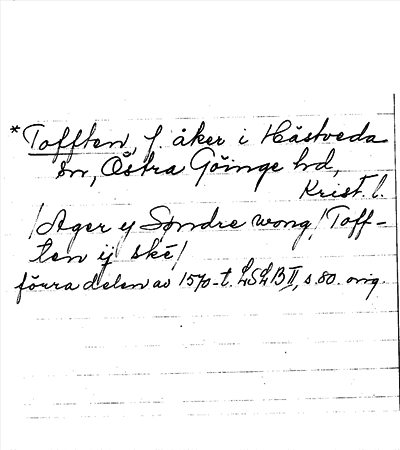 *Tofften, f. åker i Hästveda
sn, Östra Göinge hd,
Krist. l.
/Ager y Søndre wong/ Toff-
ten ij ské/
förra delen av 1570-t. LSLB II, s. 80. orig.